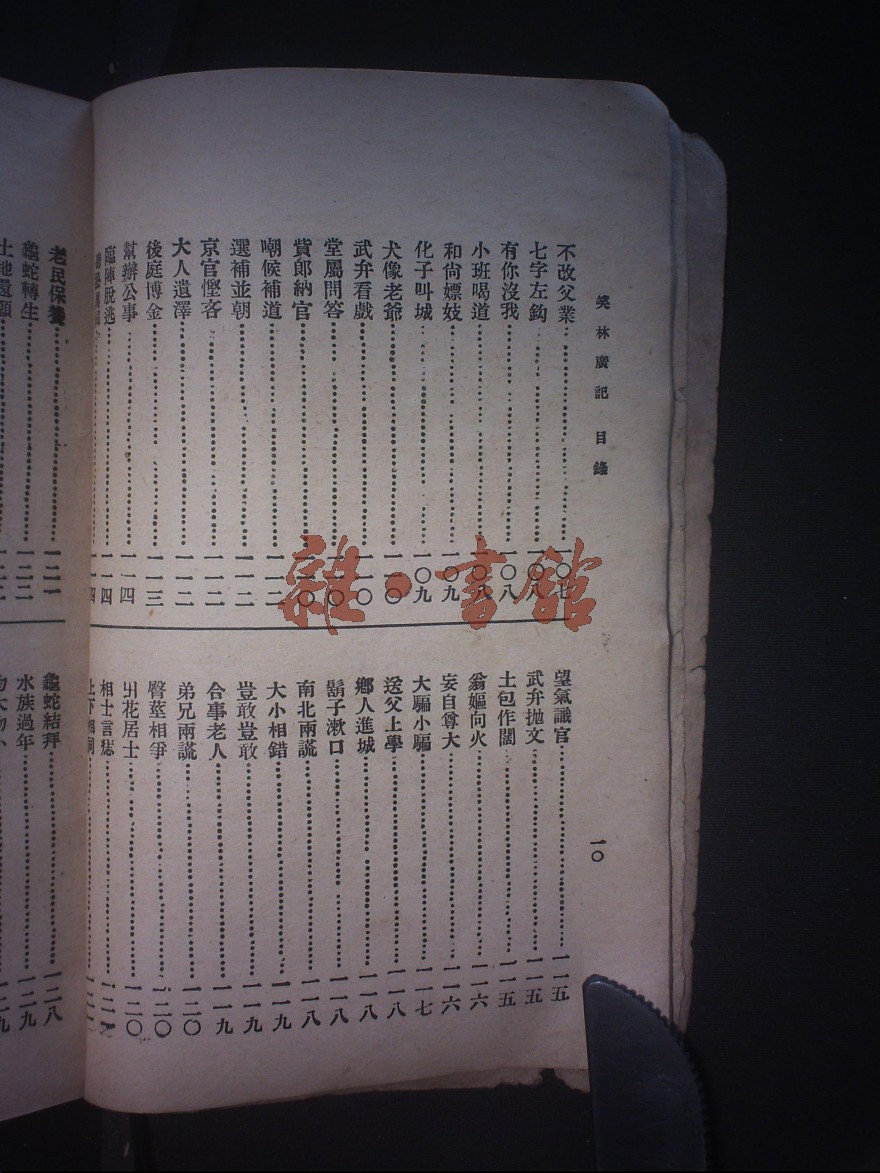 笑林廣記 目錄
一〇
不改父業 一〇七
七字左鈎 一〇八
有你沒我 一〇八
小班喝道 一〇八
和尙嫖妓 一〇九
化子叫城 一〇九
犬像老爺 一一〇
武弁看戲 一一〇
堂屬問答 一一〇
貲郎納官 一一〇
嘲候補道 一一二
選補並朝 一一二
京官慳吝 一一二
大人遺澤 一一二
後庭博金 一一三
幫辦公事 一一四
臨陣脫逃 一一四
一一四
望氣識官 一一五
武弁拋文 一一五
土包作闊 一一五
翁嫗向火 一一六
妄自尊大 一一六
大騙小騙 一一七
送父上學 一一八
鄉人進城 一一八
鬍子漱口 一一八
南北兩謊 一一八
大小相錯 一一九
豈敢豈敢 一一九
合事老人 一一九
弟兄兩謊 一二〇
臀莖相爭 一二〇
花居士 一二〇
相士言痣
上下相
老民保養 一二一
龜蛇轉生 一二二
土地還願 一二二
龜蛇結拜 一二八
水族過年 一二九
一二九
雜·書館